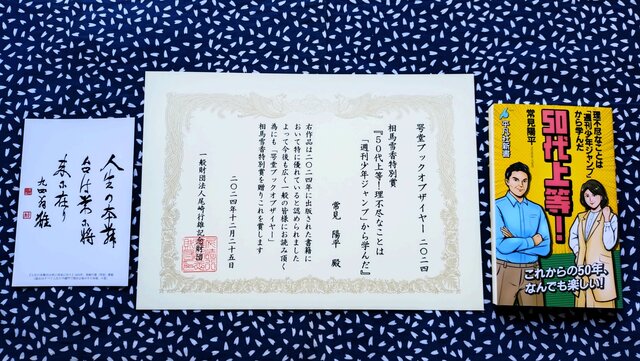 人生の本舞
台は常に将
来に在り
咢堂 ブックオブザイヤー 二〇二四
相馬雪香特別賞
『50代上等！理不尽なことは
「週刊少年ジャンプ」から学んだ』
常見 陽平 殿
右作品は二〇二四年に出版された書籍に
おいて特に優れていると認められました
よって今後も広く一般の皆様にお読み頂く
為にも「咢堂ブックオブザイヤー
相馬雪香特別賞」を贈りこれを賞します
二〇二四年十二月二十五日
一般財団法人尾崎行雄記念財団
理不尽なことは
「週刊少年ジャンプ」
から学んだ
50代上等！
常見陽平
平凡社新書
これからの50年、
なんでも楽しい！